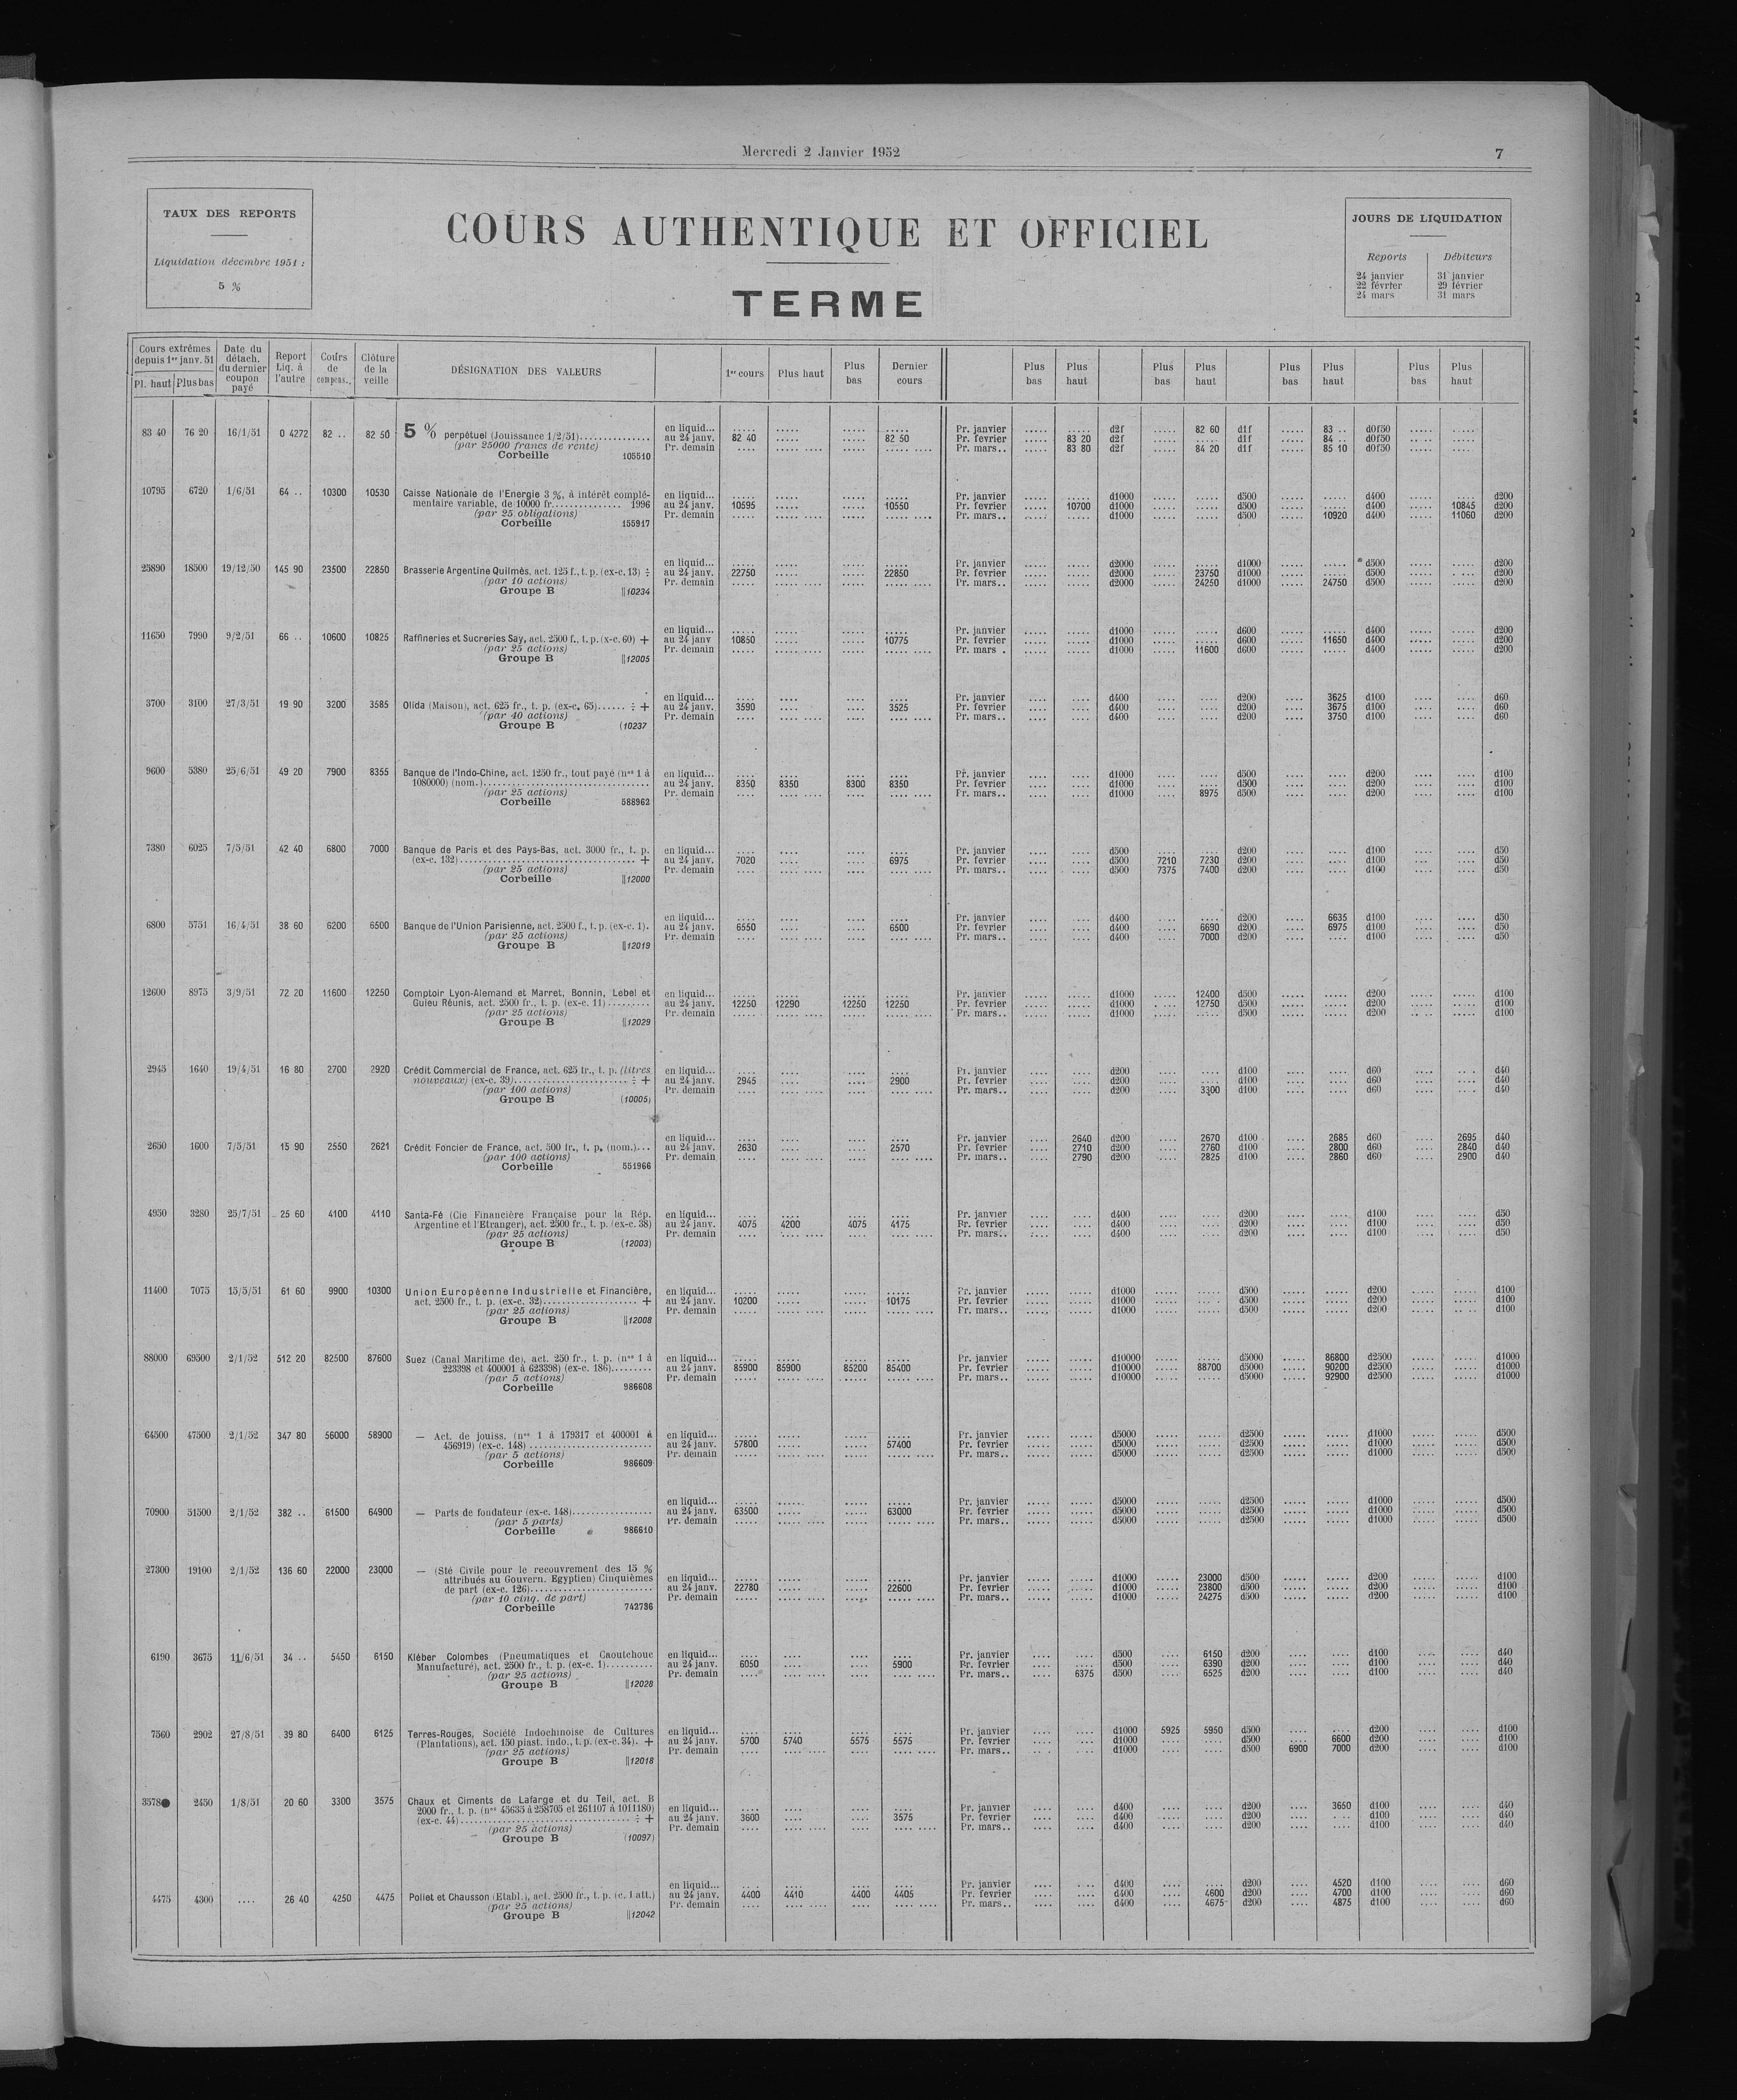 Mercredi 2 Janvier 1952
7
TAUX DES REPORTS
Liquidation décembre 1951 :
5 %
COURS AUTHENTIQUE ET OFFICIEL
TERME
JOURS DE LIQUIDATION
Reports Débiteurs
24 janvier 31 janvier
22 février 29 février
24 mars 31 mars
Cours extrêmes depuis 1er janv. 51 Pl. haut Plus bas Date du détach. du dernier coupon payé Report Liq. à l'autre Cours de compens. Clôture de la veille DÉSIGNATION DES VALEURS 1er cours Plus haut Plus bas Dernier cours Plus bas Plus haut Plus bas Plus haut Plus bas Plus haut Plus bas Plus haut
en liquid... ..... ..... ..... ..... Pr. janvier ..... ..... d2f ..... 82 60 d1f ..... 83 .. d0f50 ..... .....
83 40 76 20 16/1/51 0 4272 82 .. 82 50 5 % perpétuel (Jouissance 1/2/51)............... au 24 janv. 82 40 ..... ..... 82 50 Pr. fevrier ..... 83 20 d2f ..... ..... d1f ..... 84 .. d0f50 ..... .....
(par 25000 francs de rente) Pr. demain .... ..... .... ..... ..... .... Pr. mars.. ..... 83 80 d2f ..... 84 20 d1f ..... 85 10 d0f50 ..... .....
Corbeille 105510
10795 6720 1/6/51 64 .. 10300 10530 Caisse Nationale de l'Energie 3 %, à intérêt complé- en liquid... ..... ..... ..... ..... Pr. janvier ..... ..... d1000 ..... ..... d500 ..... ..... d400 ..... ..... d200
mentaire variable, de 10000 fr............... 1996 au 24 janv. 10595 ..... ..... 10550 Pr. fevrier ..... 10700 d1000 ..... ..... d500 ..... ..... d400 ..... 10845 d200
(par 25 obligations) Pr. demain ..... ..... .... ..... ..... .... Pr. mars.. ..... ..... d1000 ..... ..... d500 ..... 10920 d400 ..... 11060 d200
Corbeille 155917
en liquid... ..... ..... ..... ..... Pr. janvier ..... ..... d2000 ..... ..... d1000 ..... ..... d500 ..... ..... d200
25890 18500 19/12/50 145 90 23500 22850 Brasserie Argentine Quilmès, act. 125 f., t. p. (ex-c. 13) ÷ au 24 janv. 22750 ..... ..... 22850 Pr. fevrier ..... ..... d2000 ..... 23750 d1000 ..... ..... d500 ..... ..... d200
(par 10 actions) Pr. demain ..... ..... .... ..... ..... .... Pr. mars.. ..... ..... d2000 ..... 24250 d1000 ..... 24750 d500 ..... ..... d200
Groupe B ||10234
en liquid... ..... ..... ..... ..... Pr. janvier ..... ..... d1000 ..... ..... d600 ..... ..... d400 ..... ..... d200
11650 7990 9/2/51 66 .. 10600 10825 Raffineries et Sucreries Say, act. 2500 f., t. p. (x-c. 60) + au 24 janv 10850 ..... ..... 10775 Pr. fevrier ..... ..... d1000 ..... ..... d600 ..... 11650 d400 ..... ..... d200
(par 25 actions) Pr. demain ..... ..... .... ..... ..... .... Pr. mars . ..... ..... d1000 ..... 11600 d600 ..... ..... d400 ..... ..... d200
Groupe B ||12005
en liquid... .... .... .... .... Pr. janvier .... .... d400 .... .... d200 .... 3625 d100 .... .... d60
3700 3100 27/3/51 19 90 3200 3585 Olida (Maison), act. 625 fr., t. p. (ex-c. 65)...... ÷ + au 24 janv. 3590 .... .... 3525 Pr. fevrier .... .... d400 .... .... d200 .... 3675 d100 .... .... d60
(par 40 actions) Pr. demain .... .... .... .... .... .... Pr. mars.. .... .... d400 .... .... d200 .... 3750 d100 .... .... d60
Groupe B (10237
9600 5380 25/6/51 49 20 7900 8355 Banque de l'Indo-Chine, act. 1250 fr., tout payé (nos 1 à en liquid... .... .... .... .... Pr. janvier .... .... d1000 .... .... d500 .... .... d200 .... .... d100
1080000) (nom.).................................. au 24 janv. 8350 8350 8300 8350 Pr. fevrier .... .... d1000 .... .... d500 .... .... d200 .... .... d100
(par 25 actions) Pr. demain .... .... .... .... .... .... Pr. mars.. .... .... d1000 .... 8975 d500 .... .... d200 .... .... d100
Corbeille 588962
7380 6025 7/5/51 42 40 6800 7000 Banque de Paris et des Pays-Bas, act. 3000 fr., t. p. en liquid... .... .... .... .... Pr. janvier .... .... d500 .... .... d200 .... .... d100 .... .... d50
(ex-c. 132)................................... + au 24 janv. 7020 .... .... 6975 Pr. fevrier .... .... d500 7210 7230 d200 .... .... d100 .... .... d50
(par 25 actions) Pr. demain .... .... .... .... .... .... Pr. mars.. .... .... d500 7375 7400 d200 .... .... d100 .... .... d50
Corbeille ||12000
en liquid... .... .... .... .... Pr. janvier .... .... d400 .... .... d200 .... 6635 d100 .... .... d50
6800 5751 16/4/51 38 60 6200 6500 Banque de l'Union Parisienne, act. 2500 f., t. p. (ex-c. 1). au 24 janv. 6550 .... .... 6500 Pr. fevrier .... .... d400 .... 6690 d200 .... 6975 d100 .... .... d50
(par 25 actions) Pr. demain .... .... .... .... .... .... Pr. mars.. .... .... d400 .... 7000 d200 .... .... d100 .... .... d50
Groupe B ||12019
12600 8975 3/9/51 72 20 11600 12250 Comptoir Lyon-Alemand et Marret, Bonnin, Lebel et en liquid... ..... ..... ..... ..... Pr. janvier ..... ..... d1000 ..... 12400 d500 ..... ..... d200 ..... ..... d100
Guieu Réunis, act. 2500 fr., t. p. (ex-c. 11)........ au 24 janv. 12250 12290 12250 12250 Pr. fevrier ..... ..... d1000 ..... 12750 d500 ..... ..... d200 ..... ..... d100
(par 25 actions) Pr. demain ..... ..... .... ..... ..... .... Pr. mars.. ..... ..... d1000 ..... ..... d500 ..... ..... d200 ..... ..... d100
Groupe B ||12029
2945 1640 19/4/51 16 80 2700 2920 Crédit Commercial de France, act. 625 fr., t. p. (titres en liquid... .... .... .... .... Pr. janvier .... .... d200 .... .... d100 .... .... d60 .... .... d40
nouveaux) (ex-c. 39)...................... ÷ + au 24 janv. 2945 .... .... 2900 Pr. fevrier .... .... d200 .... .... d100 .... .... d60 .... .... d40
(par 100 actions) Pr. demain .... .... .... .... .... .... Pr. mars.. .... .... d200 .... 3300 d100 .... .... d60 .... .... d40
Groupe B (10005)
en liquid... .... .... .... .... Pr. janvier .... 2640 d200 .... 2670 d100 .... 2685 d60 .... 2695 d40
2650 1600 7/5/51 15 90 2550 2621 Crédit Foncier de France, act. 500 fr., t. p. (nom.)... au 24 janv. 2630 .... .... 2570 Pr. fevrier .... 2710 d200 .... 2760 d100 .... 2800 d60 .... 2840 d40
(par 100 actions) Pr. demain .... .... .... .... .... .... Pr. mars.. .... 2790 d200 .... 2825 d100 .... 2860 d60 .... 2900 d40
Corbeille 551966
4950 3280 25/7/51 25 60 4100 4110 Santa-Fé (Cie Financière Française pour la Rép. en liquid... .... .... .... .... Pr. janvier .... .... d400 .... .... d200 .... .... d100 .... .... d50
Argentine et l'Etranger), act. 2500 fr., t. p. (ex-c. 38) au 24 janv. 4075 4200 4075 4175 Pr. fevrier .... .... d400 .... .... d200 .... .... d100 .... .... d50
(par 25 actions) Pr. demain .... .... .... .... .... .... Pr. mars.. .... .... d400 .... .... d200 .... .... d100 .... .... d50
Groupe B (12003)
11400 7075 15/5/51 61 60 9900 10300 Union Européenne Industrielle et Financière, en liquid... ..... ..... ..... ..... Pr. janvier ..... ..... d1000 ..... ..... d500 ..... ..... d200 ..... ..... d100
act. 2500 fr., t. p. (ex-c. 32)................... + au 24 janv. 10200 ..... ..... 10175 Pr. fevrier ..... ..... d1000 ..... ..... d500 ..... ..... d200 ..... ..... d100
(par 25 actions) Pr. demain ..... ..... .... ..... ..... .... Pr. mars.. ..... ..... d1000 ..... ..... d500 ..... ..... d200 ..... ..... d100
Groupe B ||12008
88000 69500 2/1/52 512 20 82500 87600 Suez (Canal Maritime de), act. 250 fr., t. p. (nos 1 à en liquid... ..... ..... ..... ..... Pr. janvier ..... ..... d10000 ..... ..... d5000 ..... 86800 d2500 ..... ..... d1000
223398 et 400001 à 623398) (ex-c. 186)........ au 24 janv. 85900 85900 85200 85400 Pr. fevrier ..... ..... d10000 ..... 88700 d5000 ..... 90200 d2500 ..... ..... d1000
(par 5 actions) Pr. demain ..... ..... .... ..... ..... .... Pr. mars.. ..... ..... d10000 ..... ..... d5000 ..... 92900 d2500 ..... ..... d1000
Corbeille 986608
64500 47500 2/1/52 347 80 56000 58900 — Act. de jouiss. (nos 1 à 179317 et 400001 à en liquid... ..... ..... ..... ..... Pr. janvier ..... ..... d5000 ..... ..... d2500 ..... ..... d1000 ..... ..... d500
456919) (ex-c. 148)......................... au 24 janv. 57800 ..... ..... 57400 Pr. fevrier ..... ..... d5000 ..... ..... d2500 ..... ..... d1000 ..... ..... d500
(par 5 actions) Pr. demain ..... ..... .... ..... ..... .... Pr. mars.. ..... ..... d5000 ..... ..... d2500 ..... ..... d1000 ..... ..... d500
Corbeille 986609
en liquid... ..... ..... ..... ..... Pr. janvier ..... ..... d5000 ..... ..... d2500 ..... ..... d1000 ..... ..... d500
70900 51500 2/1/52 382 .. 61500 64900 — Parts de fondateur (ex-c. 148)................ au 24 janv. 63500 ..... ..... 63000 Pr. fevrier ..... ..... d5000 ..... ..... d2500 ..... ..... d1000 ..... ..... d500
(par 5 parts) Pr. demain ..... ..... .... ..... ..... .... Pr. mars.. ..... ..... d5000 ..... ..... d2500 ..... ..... d1000 ..... ..... d500
Corbeille 986610
27300 19100 2/1/52 136 60 22000 23000 — (Sté Civile pour le recouvrement des 15 %
attribués au Gouvern. Egyptien) Cinquièmes en liquid... ..... ..... ..... ..... Pr. janvier ..... ..... d1000 ..... 23000 d500 ..... ..... d200 ..... ..... d100
de part (ex-c. 126)......................... au 24 janv. 22780 ..... ..... 22600 Pr. fevrier ..... ..... d1000 ..... 23800 d500 ..... ..... d200 ..... ..... d100
(par 10 cinq. de part) Pr. demain ..... ..... .... ..... ..... .... Pr. mars.. ..... ..... d1000 ..... 24275 d500 ..... ..... d200 ..... ..... d100
Corbeille 742736
6190 3675 11/6/51 34 .. 5450 6150 Kléber Colombes (Pneumatiques et Caoutchouc en liquid... .... .... .... .... Pr. janvier .... .... d500 .... 6150 d200 .... .... d100 .... .... d40
Manufacturé), act. 2500 fr., t. p. (ex-c. 1)......... au 24 janv. 6050 .... .... 5900 Pr. fevrier .... .... d500 .... 6390 d200 .... .... d100 .... .... d40
(par 25 actions) Pr. demain .... .... .... .... .... .... Pr. mars.. .... 6375 d500 .... 6525 d200 .... .... d100 .... .... d40
Groupe B ||12028
7560 2902 27/8/51 39 80 6400 6125 Terres-Rouges, Société Indochinoise de Cultures en liquid... .... .... .... .... Pr. janvier .... .... d1000 5925 5950 d500 .... .... d200 .... .... d100
(Plantations), act. 150 piast. indo., t. p. (ex-c. 34). + au 24 janv. 5700 5740 5575 5575 Pr. fevrier .... .... d1000 .... .... d500 .... 6600 d200 .... .... d100
(par 25 actions) Pr. demain .... .... .... .... .... .... Pr. mars.. .... .... d1000 .... .... d500 6900 7000 d200 .... .... d100
Groupe B ||12018
3578 2450 1/8/51 20 60 3300 3575 Chaux et Ciments de Lafarge et du Teil, act. B
2000 fr., t. p. (nos 45635 à 258705 et 261107 à 1011180) en liquid... .... .... .... .... Pr. janvier .... .... d400 .... .... d200 .... 3650 d100 .... .... d40
(ex-c. 44).................................. ÷ + au 24 janv. 3600 .... .... 3575 Pr. fevrier .... .... d400 .... .... d200 .... .... d100 .... .... d40
(par 25 actions) Pr. demain .... .... .... .... .... .... Pr. mars.. .... .... d400 .... .... d200 .... .... d100 .... .... d40
Groupe B (10097)
en liquid... .... .... .... .... Pr. janvier .... .... d400 .... .... d200 .... 4520 d100 .... .... d60
4475 4300 .... 26 40 4250 4475 Poliet et Chausson (Etabl.), act. 2500 fr., t. p. (c. 1 att.) au 24 janv. 4400 4410 4400 4405 Pr. fevrier .... .... d400 .... 4600 d200 .... 4700 d100 .... .... d60
(par 25 actions) Pr. demain .... .... .... .... .... .... Pr. mars.. .... .... d400 .... 4675 d200 .... 4875 d100 .... .... d60
Groupe B ||12042